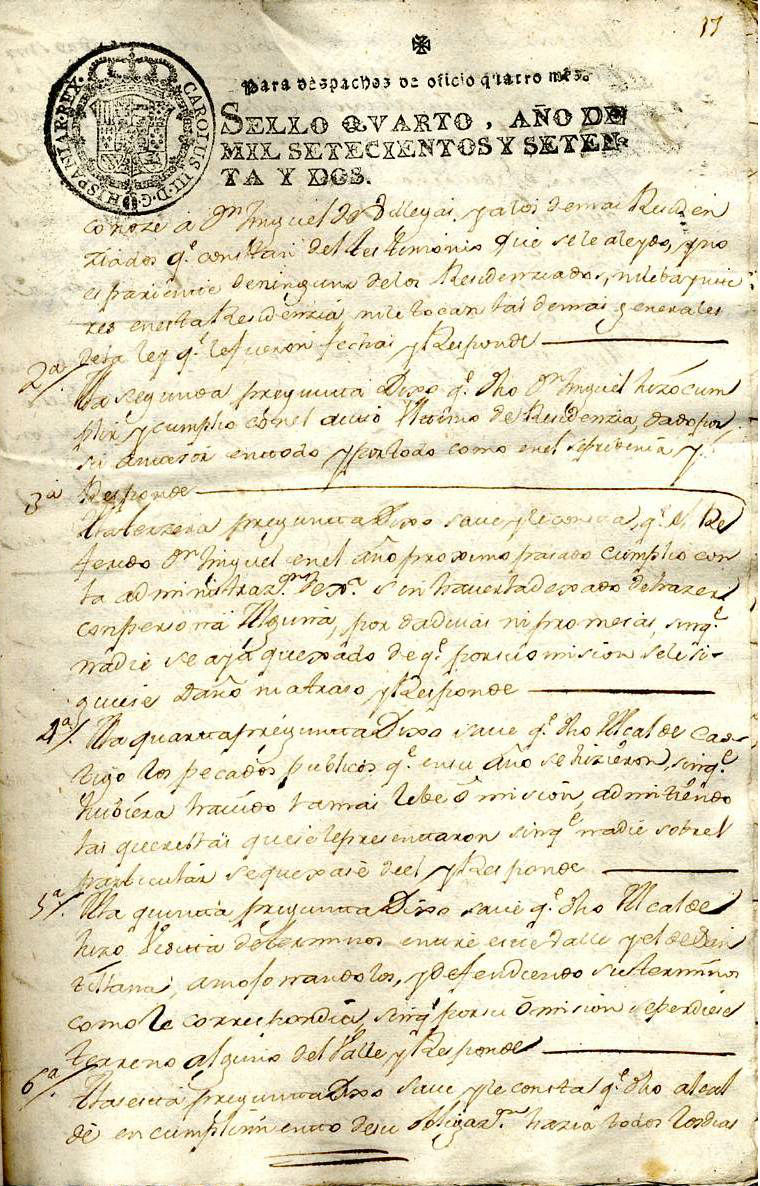 17
Para despachos de oficio quatro mrs.
SELLO QVARTO, AÑO DE
MIL SETECIENTOS Y SETEN-
TA Y DOS.
CAROLUS III D. G. HISPANIAR. REX
conoze á Dn Miguel de Villegas, y a los demas Residen
ziados qe constan del testimonio que se le a leydo, y no
es pariente de ninguno de los Residenziados, ni lleba ynte
res en esta Residenzia ni le tocan las demas generales
de la ley qe le fueron fechas y Responde
2a/. A la segunda pregunta Dixo qe dho Dn Miguel hizo cum
plir y cumplio con el auto Ultimo de Residenzia, dado por
su antezesor en todo y por todo como en el se prebenia y
Responde
3a A la terzera pregunta Dixo save y le consta, qe el Re
ferido Dn Miguel en el año proximo pasado cumplio con
la administrazn de Xa. sin haverla dexado de hazer
con persona Alguna, por dadivas ni promesas, sinqe
nadie se aya quexado de qe por su omision se le si-
guiese Daño ni atraso y Responde
4a/. A la quarta pregunta Dixo save qe dho Alcalde Cas-
tigo los pecados publicos qe en su año se hizieron, sinqe
hubiera havido la mas lebe omision, admitiendo
las querellas que se le presentaron sinqe nadie sobre el
particular se quexase de el y Responde
5a/. A la quinta pregunta Dixo save qe dho Alcalde
hizo Vesita de terminos entre este Valle y el de San
tillana, amojonandolos, y defendiendo sus terminos
como le correspondia sinqe por su omision se perdiese
terreno alguno del Valle y Responde
6a/. A la sesta pregunta Dixo save y le consta qe dho alcal
de en cumplimiento de su obligazn hazia todos los dias